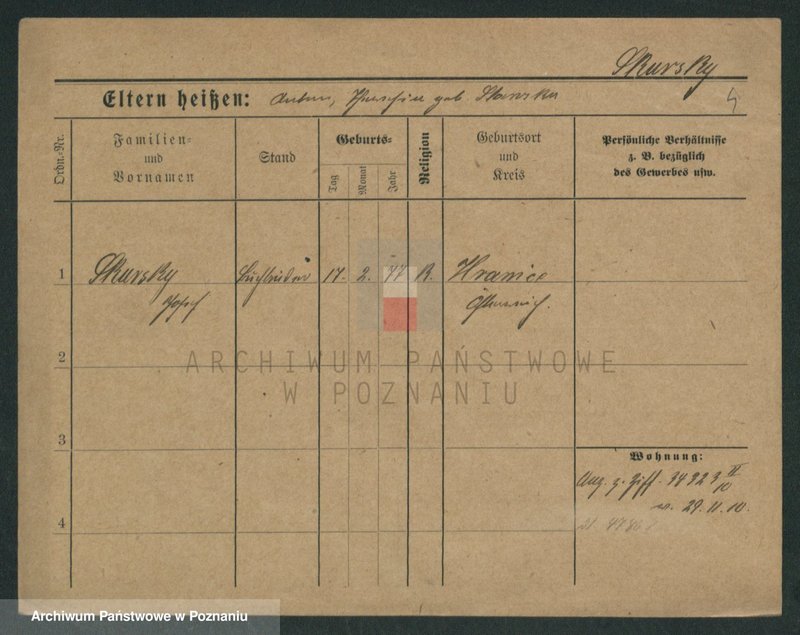 Skursky
Eltern heißen: Anton, geb.
4
Ordn.-Nr.
Familien-
und
Vornamen
Stand
Geburts-
Tag
Monat
Jahr
Religion
Geburtsort
und
Kreis
Persönliche Verhältnisse
z. B. bezüglich
des Gewerbes usw.
1 Skursky 17. 2. 77 R. Hranice
Josef Österreich.
2
ARCHIWUM PAŃSTWOWE
W POZNANIU
3
Wohnung:
Ang. z. Ziff. 34323 II/10
v. 29.11.10.
4
Archiwum Państwowe w Poznaniu